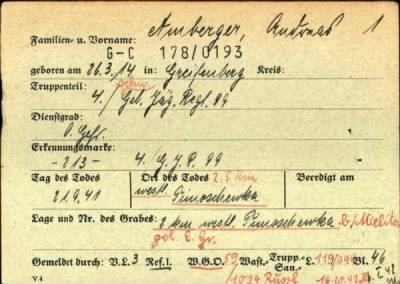 Familien- u. Vorname: Amberger, Andreas 1
G-C 178/0193
geboren am 26.3.14 in: Greifenberg Kreis:
Truppenteil:
4./Geb. Jäg. Regt. 99
Dienstgrad:
O. Gefr.
Erkennungsmarke:
-213- 4. G.J.R. 99
Tag des Todes Ort des Todes 2,5 km Beerdigt am
21.9.41 westl. Timoschewka
Lage und Nr. des Grabes: 2 km westl. Timoschewka b/Mielitop
Gemeldet durch: V.L. 3 Ref. I. W.G.O. 59. Wast.- Trupp.- San.- L. 119/046 Bl. 46
1094 Russl
V4